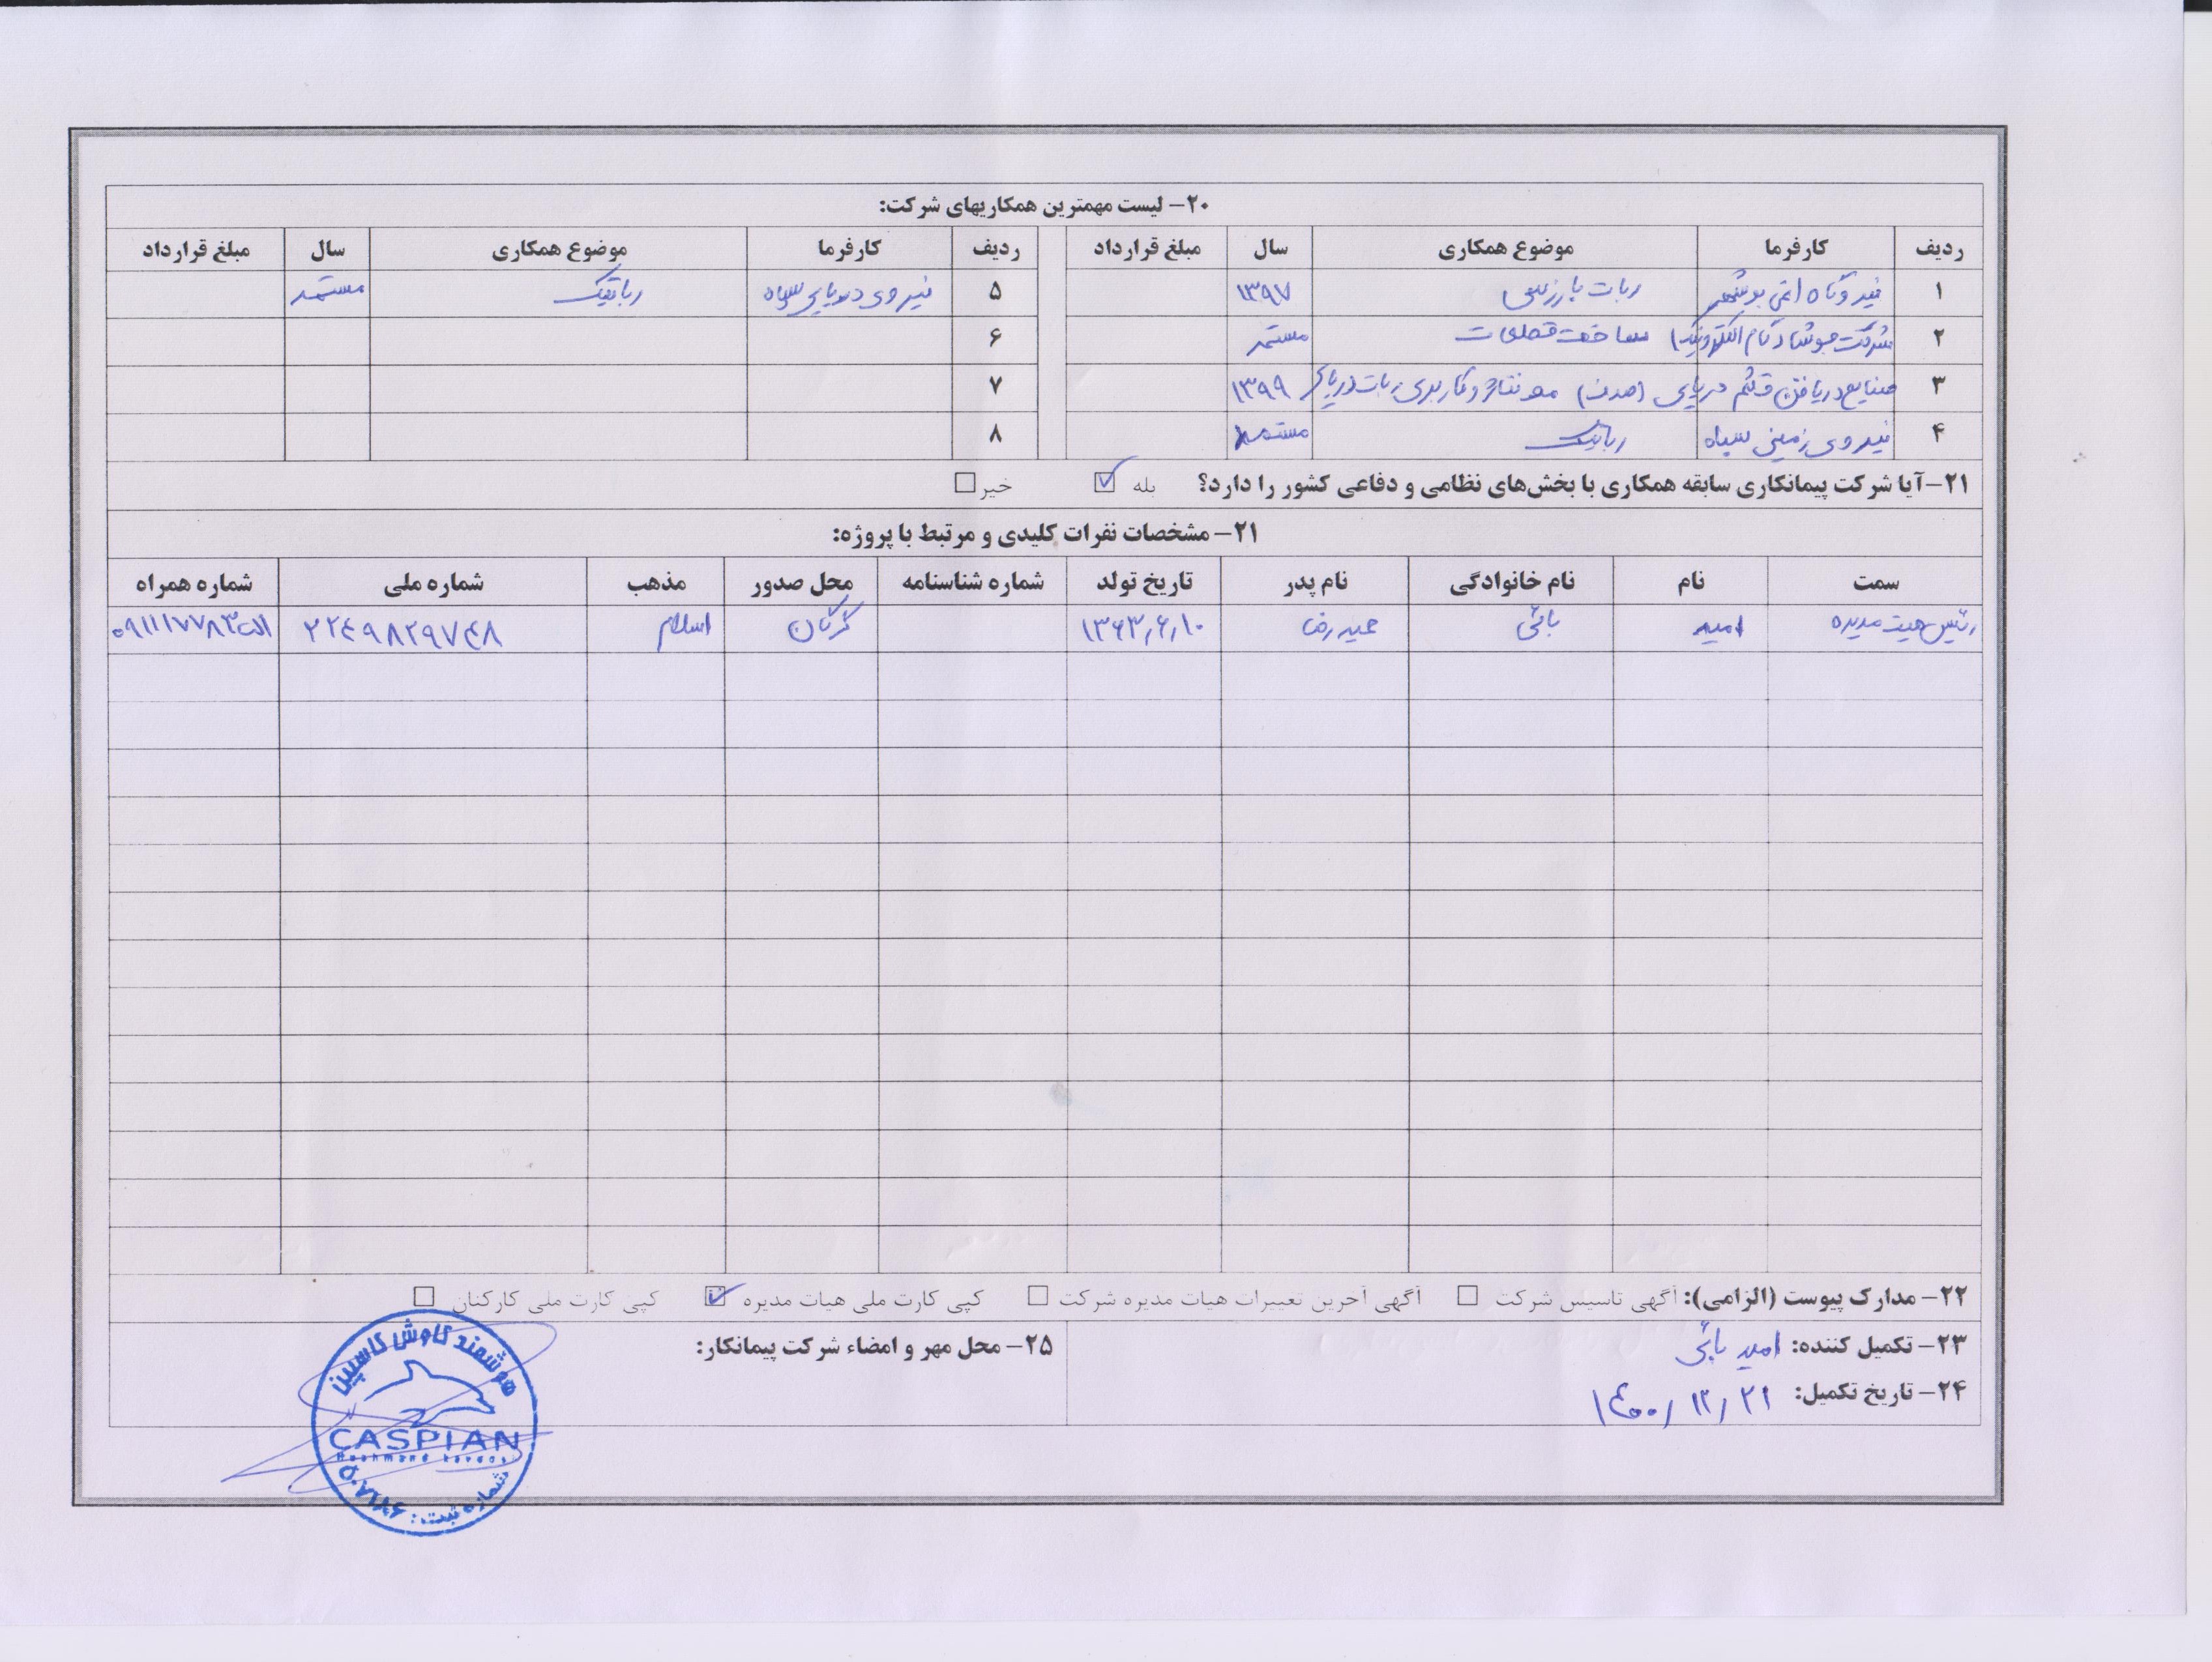 ۲۰- لیست مهمترین همکاریهای شرکت:
ردیف کارفرما موضوع همکاری سال مبلغ قرارداد ردیف کارفرما موضوع همکاری سال مبلغ قرارداد
۱ نیروگاه اتمی بوشهر ربات بازرسی ۱۳۹۷ ۵ نیروی دریایی سپاه رباتیک مستمر
۲ شرکت الکترونیک ساخت قطعات مستمر ۶
۳ صنایع دریافن قشم دریایی (صدف) مونتاژ و کاربری ربات دریایی ۱۳۹۹ ۷
۴ نیروی زمینی سپاه رباتیک مستمر ۸
۲۱-آیا شرکت پیمانکاری سابقه همکاری با بخش‌های نظامی و دفاعی کشور را دارد؟ بله خیر
۲۱- مشخصات نفرات کلیدی و مرتبط با پروژه:
سمت نام نام خانوادگی نام پدر تاریخ تولد شماره شناسنامه محل صدور مذهب شماره ملی شماره همراه
رئیس هیئت مدیره امید بائی حمیدرضا ۱۳۶۳/۶/۱۰ گرگان اسلام ۲۲۴۹۸۲۹۷۴۸
۲۲- مدارک پیوست (الزامی): آگهی تاسیس شرکت آگهی آخرین تغییرات هیات مدیره شرکت کپی کارت ملی هیات مدیره کپی کارت ملی کارکنان
۲۳- تکمیل کننده: امید بائی
۲۴- تاریخ تکمیل: ۱۴۰۰/۱۲/۲۱
۲۵- محل مهر و امضاء شرکت پیمانکار:
هوشمند کاوش کاسپین
CASPIAN
Hooshmand kavosh
شماره ثبت: ۵۰۷۱۸۶